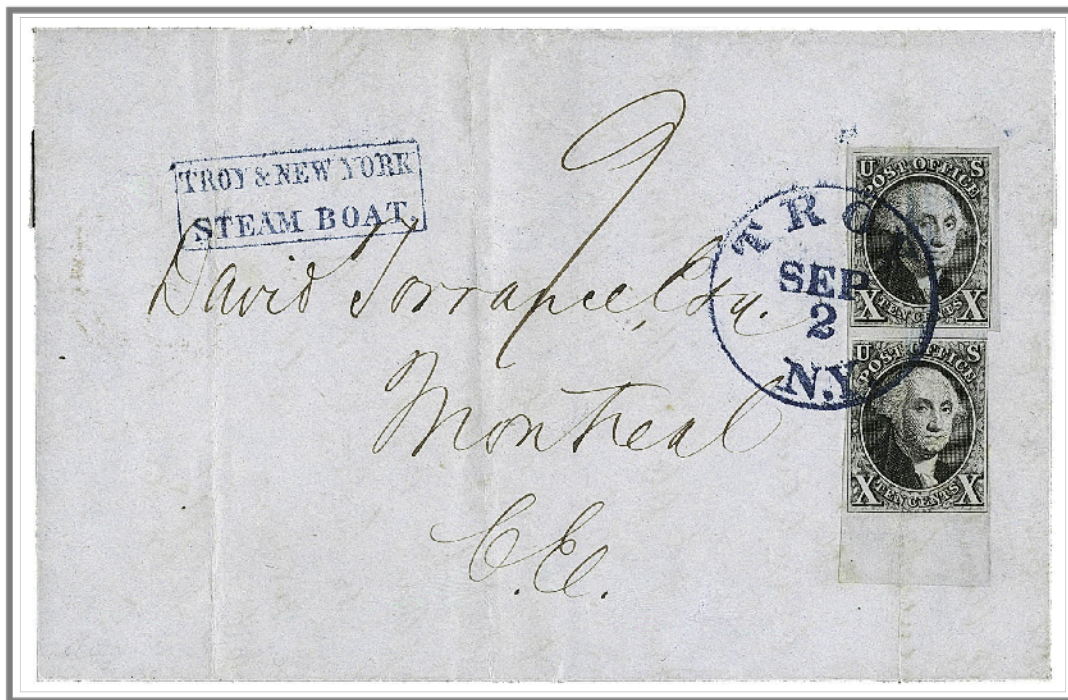 TROY & NEW YORK
STEAM BOAT.
9
David Torrance, Esq.
Montreal
C.E.
TROY
SEP
2
N.Y.
U S
POST OFFICE
X X
TEN CENTS
U S
POST OFFICE
X X
TEN CENTS